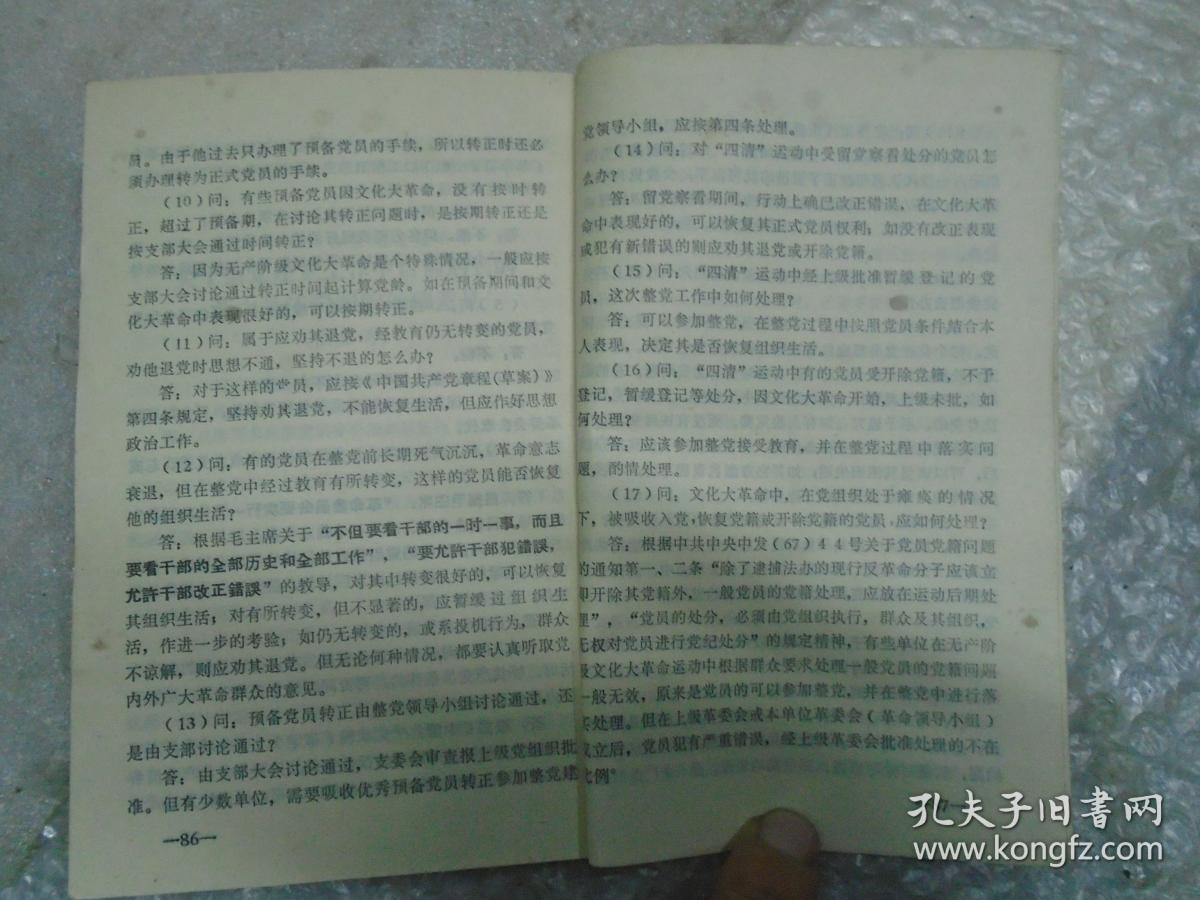 员。由于他过去只办理了预备党员的手续，所以转正时还必
须办理转为正式党员的手续。
(10)问：有些预备党员因文化大革命，没有按时转
正，超过了预备期，在讨论其转正问题时，是按期转正还是
按支部大会通过时间转正？
答：因为无产阶级文化大革命是个特殊情况，一般应按
支部大会讨论通过转正时间起计算党龄。如在预备期间和文
化大革命中表现很好的，可以按期转正。
(11)问：属于应劝其退党，经教育仍无转变的党员，
劝他退党时思想不通，坚持不退的怎么办？
答：对于这样的党员，应按《中国共产党章程(草案)》
第四条规定，坚持劝其退党，不能恢复生活，但应作好思想
政治工作。
(12)问：有的党员在整党前长期死气沉沉，革命意志
衰退，但在整党中经过教育有所转变，这样的党员能否恢复
他的组织生活？
答：根据毛主席关于“不但要看干部的一时一事，而且
要看干部的全部历史和全部工作”，“要允許干部犯錯誤，
允許干部改正錯誤”的教导，对其中转变很好的，可以恢复
其组织生活；对有所转变，但不显著的，应暂缓过组织生
活，作进一步的考验；如仍无转变的，或系投机行为，群众
不谅解，则应劝其退党。但无论何种情况，都要认真听取党
内外广大革命群众的意见。
(13)问：预备党员转正由整党领导小组讨论通过，还
是由支部讨论通过？
答：由支部大会讨论通过，支委会审查报上级党组织批
准。但有少数单位，需要吸收优秀预备党员转正参加整党建
—86—
党领导小组，应按第四条处理。
(14)问：对“四清”运动中受留党察看处分的党员怎
么办？
答：留党察看期间，行动上确已改正错误，在文化大革
命中表现好的，可以恢复其正式党员权利；如没有改正表现
或犯有新错误的则应劝其退党或开除党籍。
(15)问：“四清”运动中经上级批准暂缓登记的党
员，这次整党工作中如何处理？
答：可以参加整党，在整党过程中按照党员条件结合本
人表现，决定其是否恢复组织生活。
(16)问：“四清”运动中有的党员受开除党籍，不予
登记，暂缓登记等处分，因文化大革命开始，上级未批，如
何处理？
答：应该参加整党接受教育，并在整党过程中落实问
题，酌情处理。
(17)问：文化大革命中，在党组织处于瘫痪的情况
下，被吸收入党，恢复党籍或开除党籍的党员，应如何处理？
答：根据中共中央中发(67)44号关于党员党籍问题
的通知第一、二条“除了逮捕法办的现行反革命分子应该立
即开除其党籍外，一般党员的党籍处理，应放在运动后期处
理”，“党员的处分，必须由党组织执行，群众及其组织，
无权对党员进行党纪处分”的规定精神，有些单位在无产阶
级文化大革命运动中根据群众要求处理一般党员的党籍问题
一般无效，原来是党员的可以参加整党，并在整党中进行落
实处理。但在上级革委会或本单位革委会(革命领导小组)
成立后，党员犯有严重错误，经上级革委会批准处理的不在
此例。
7—
孔夫子旧书网
www.kongfz.com